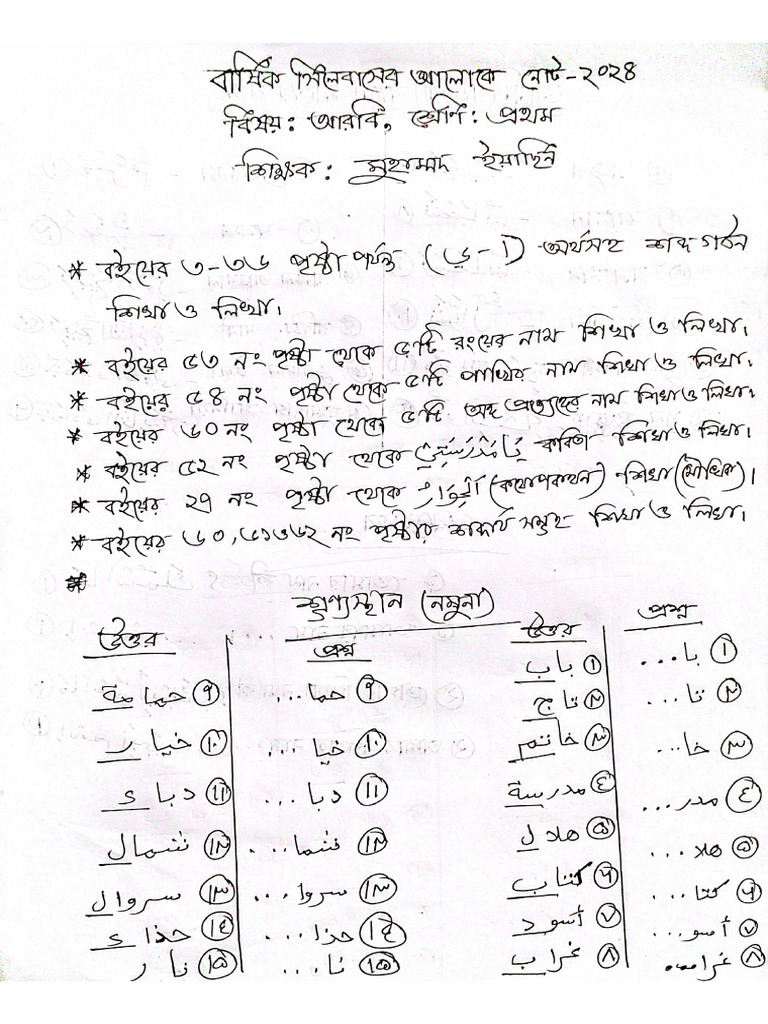 বার্ষিক সিলেবাসের আলোকে নোট-২০২৪
বিষয়: আরবি, শ্রেণি: প্রথম
শিক্ষক: মুহাম্মদ ইয়াছিন
* বইয়ের ৩-৩৬ পৃষ্ঠা পর্যন্ত (ا - ي) অর্থসহ শব্দ গঠন
শিখা ও লিখা।
* বইয়ের ৫৩ নং পৃষ্ঠা থেকে ৫টি রংয়ের নাম শিখা ও লিখা।
* বইয়ের ৫৪ নং পৃষ্ঠা থেকে ৫টি পাখির নাম শিখা ও লিখা।
* বইয়ের ৬০ নং পৃষ্ঠা থেকে ৫টি অঙ্গ প্রত্যঙ্গের নাম শিখা ও লিখা।
* বইয়ের ৫২ নং পৃষ্ঠা থেকে يَا مَدْرَسَتِيْ কবিতা শিখা ও লিখা।
* বইয়ের ২৭ নং পৃষ্ঠা থেকে اَلْحِوَارُ (কথোপকথন) শিখা (মৌখিক)।
* বইয়ের ৬০,৬১ও৬২ নং পৃষ্ঠার শব্দার্থ সমূহ শিখা ও লিখা।
*
শুণ্যস্থান (নমুনা)
প্রশ্ন
উত্তর
প্রশ্ন
উত্তর
১ با... ১ باب ৯ حما... ৯ حمامة
২ تا... ২ تاج ১০ خيا... ১০ خيار
৩ خا... ৩ خاتم ১১ دبا... ১১ دباء
৪ مدر... ৪ مدرسة ১২ شما... ১২ شمال
৫ هلا... ৫ هلال ১৩ سروا... ১৩ سروال
৬ كتا... ৬ كتاب ১৪ حذا... ১৪ حذاء
৭ أسو... ৭ أسود ১৫ نا... ১৫ نار
৮ غرا... ৮ غراب